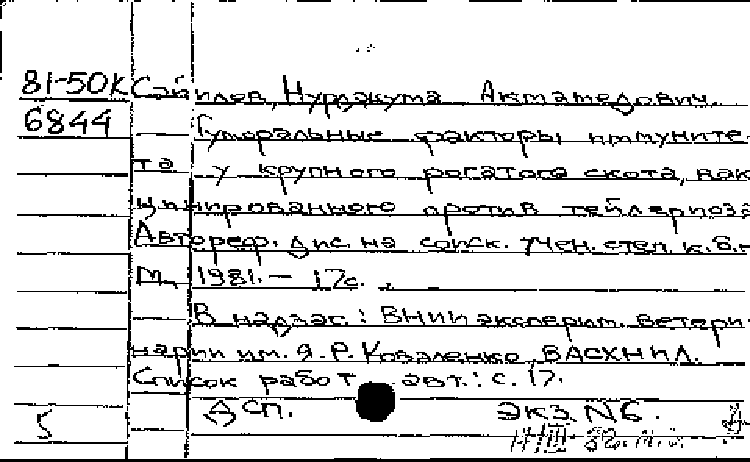 81-50К
6844
Нурджума Акмамедович.
Гуморальные факторы иммуните-
та у крупного рогатого скота, вак
цинированного против тейлериоза
Автореф. дис. на соиск. учен. степ. к.в.н
М., 1981. – 17с.
В надзаг.: ВНИИ эксперим. ветери-
нарии им. Я. Р. Коваленко, ВАСХНИЛ.
Список работ авт.: с. 17.
5 Д СП. ЭКЗ. N6.